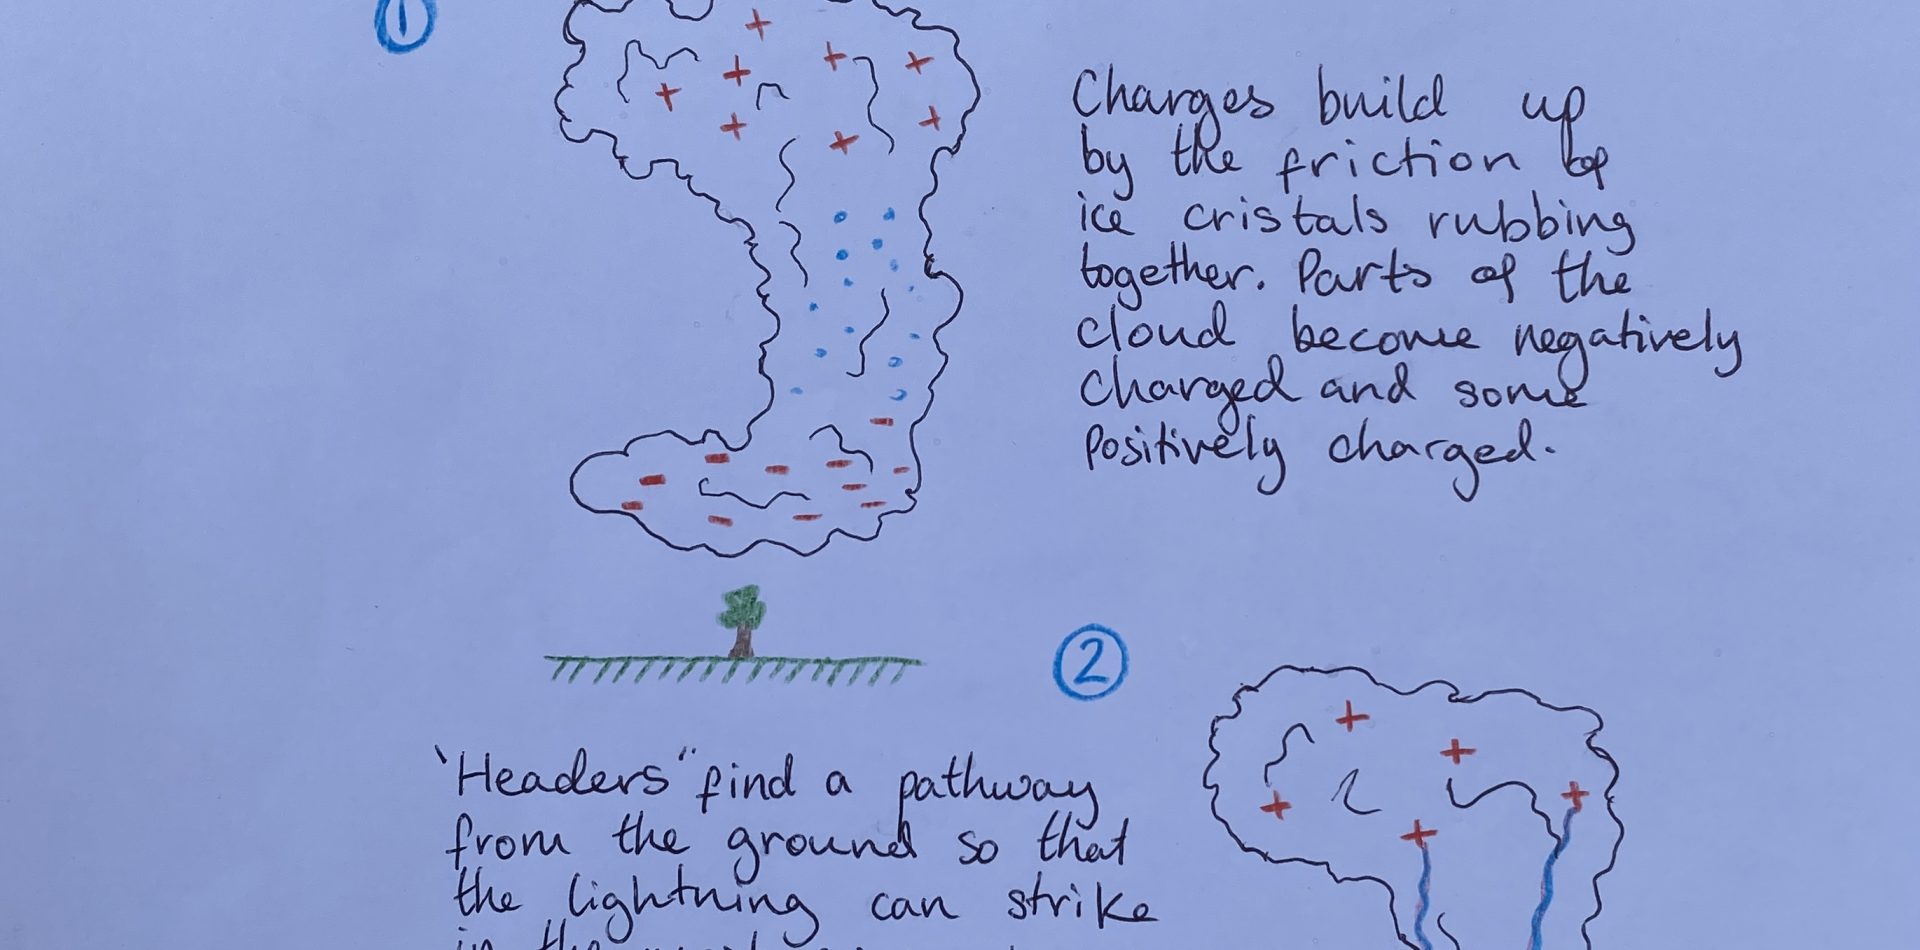 1
Charges build up
by the friction of
ice cristals rubbing
together. Parts of the
cloud become negatively
charged and some
positively charged.
2
'Headers" find a pathway
from the ground so that
the lightning can strike
in the